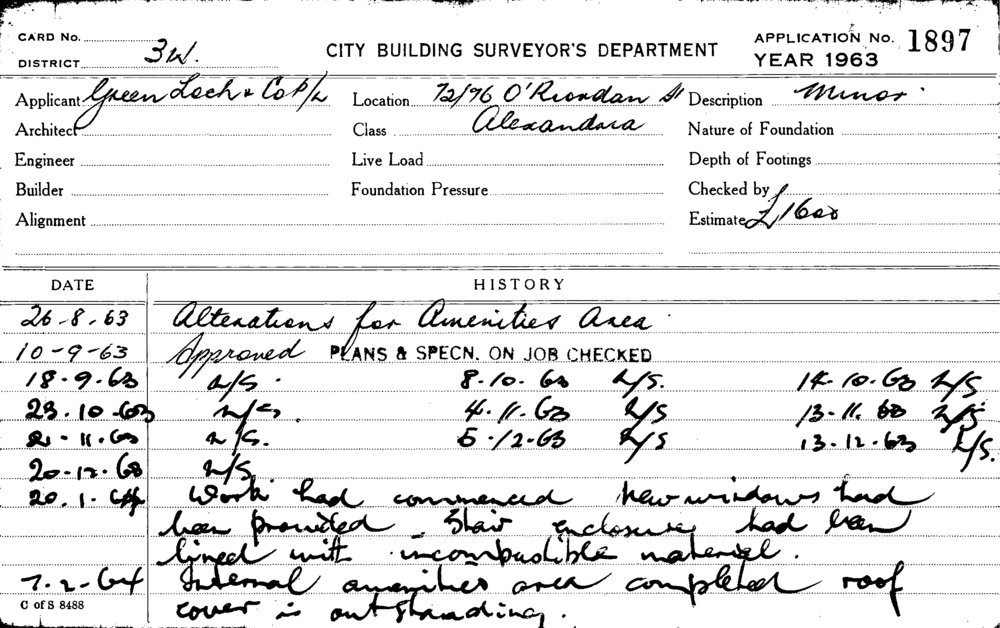 CARD No.
DISTRICT 3W.
CITY BUILDING SURVEYOR'S DEPARTMENT
APPLICATION No. 1897
YEAR 1963
Applicant Green Loch & Co P/L Location 72/76 O'Riordan St Description Minor
Architect Class Alexandria Nature of Foundation
Engineer Live Load Depth of Footings
Builder Foundation Pressure Checked by
Alignment Estimate £1600
DATE HISTORY
26-8-63 Alterations for Amenities Area
10-9-63 Approved PLANS & SPECN. ON JOB CHECKED
18-9-63 N/S. 8-10-63 N/S. 14-10-63 N/S
23.10.63 N/S. 4.11.63 N/S 13-11.63 N/S
21-11.63 N/S. 5-12-63 N/S 13-12-63 N/S.
20-12-63 N/S
20.1.64 Work had commenced new windows had
been provided Stair enclosure had been
lined with incombustible material.
7-2-64 Internal amenities area completed roof
cover is outstanding.
C of S 8488